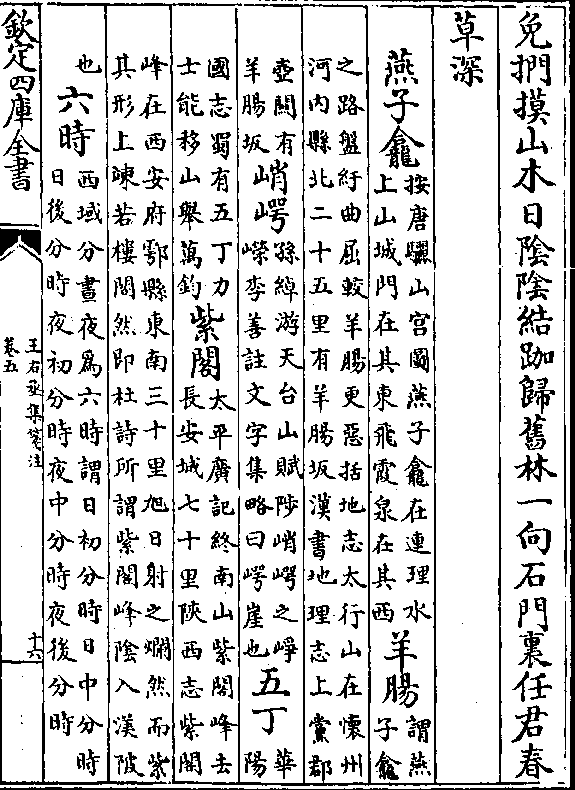 免捫摸山木日陰陰結跏歸舊林一向石門裏任君春
草深
燕子龕
按唐驪山宮圖燕子龕在連理水
上山城門在其東飛霞泉在其西
羊腸
謂燕
子龕
之路盤紆曲屈較羊腸更惡括地志太行山在懷州
河内縣北二十五里有羊腸坂漢書地理志上黨郡
壺關有
羊腸坂
峭崿
孫綽游天台山賦陟峭崿之崢
嶸李善註文字集略曰崿崖也
五丁
華
陽
國志蜀有五丁力
士能移山舉萬鈞
紫閣
太平廣記終南山紫閣峰去
長安城七十里陝西志紫閣
峰在西安府鄠縣東南三十里旭日射之爛然而紫
其形上竦若樓閣然即杜詩所謂紫閣峰陰入渼陂
也
六時
西域分晝夜爲六時謂日初分時日中分時
日後分時夜初分時夜中分時夜後分時
欽定四庫全書
王右丞集箋注
卷五
十六